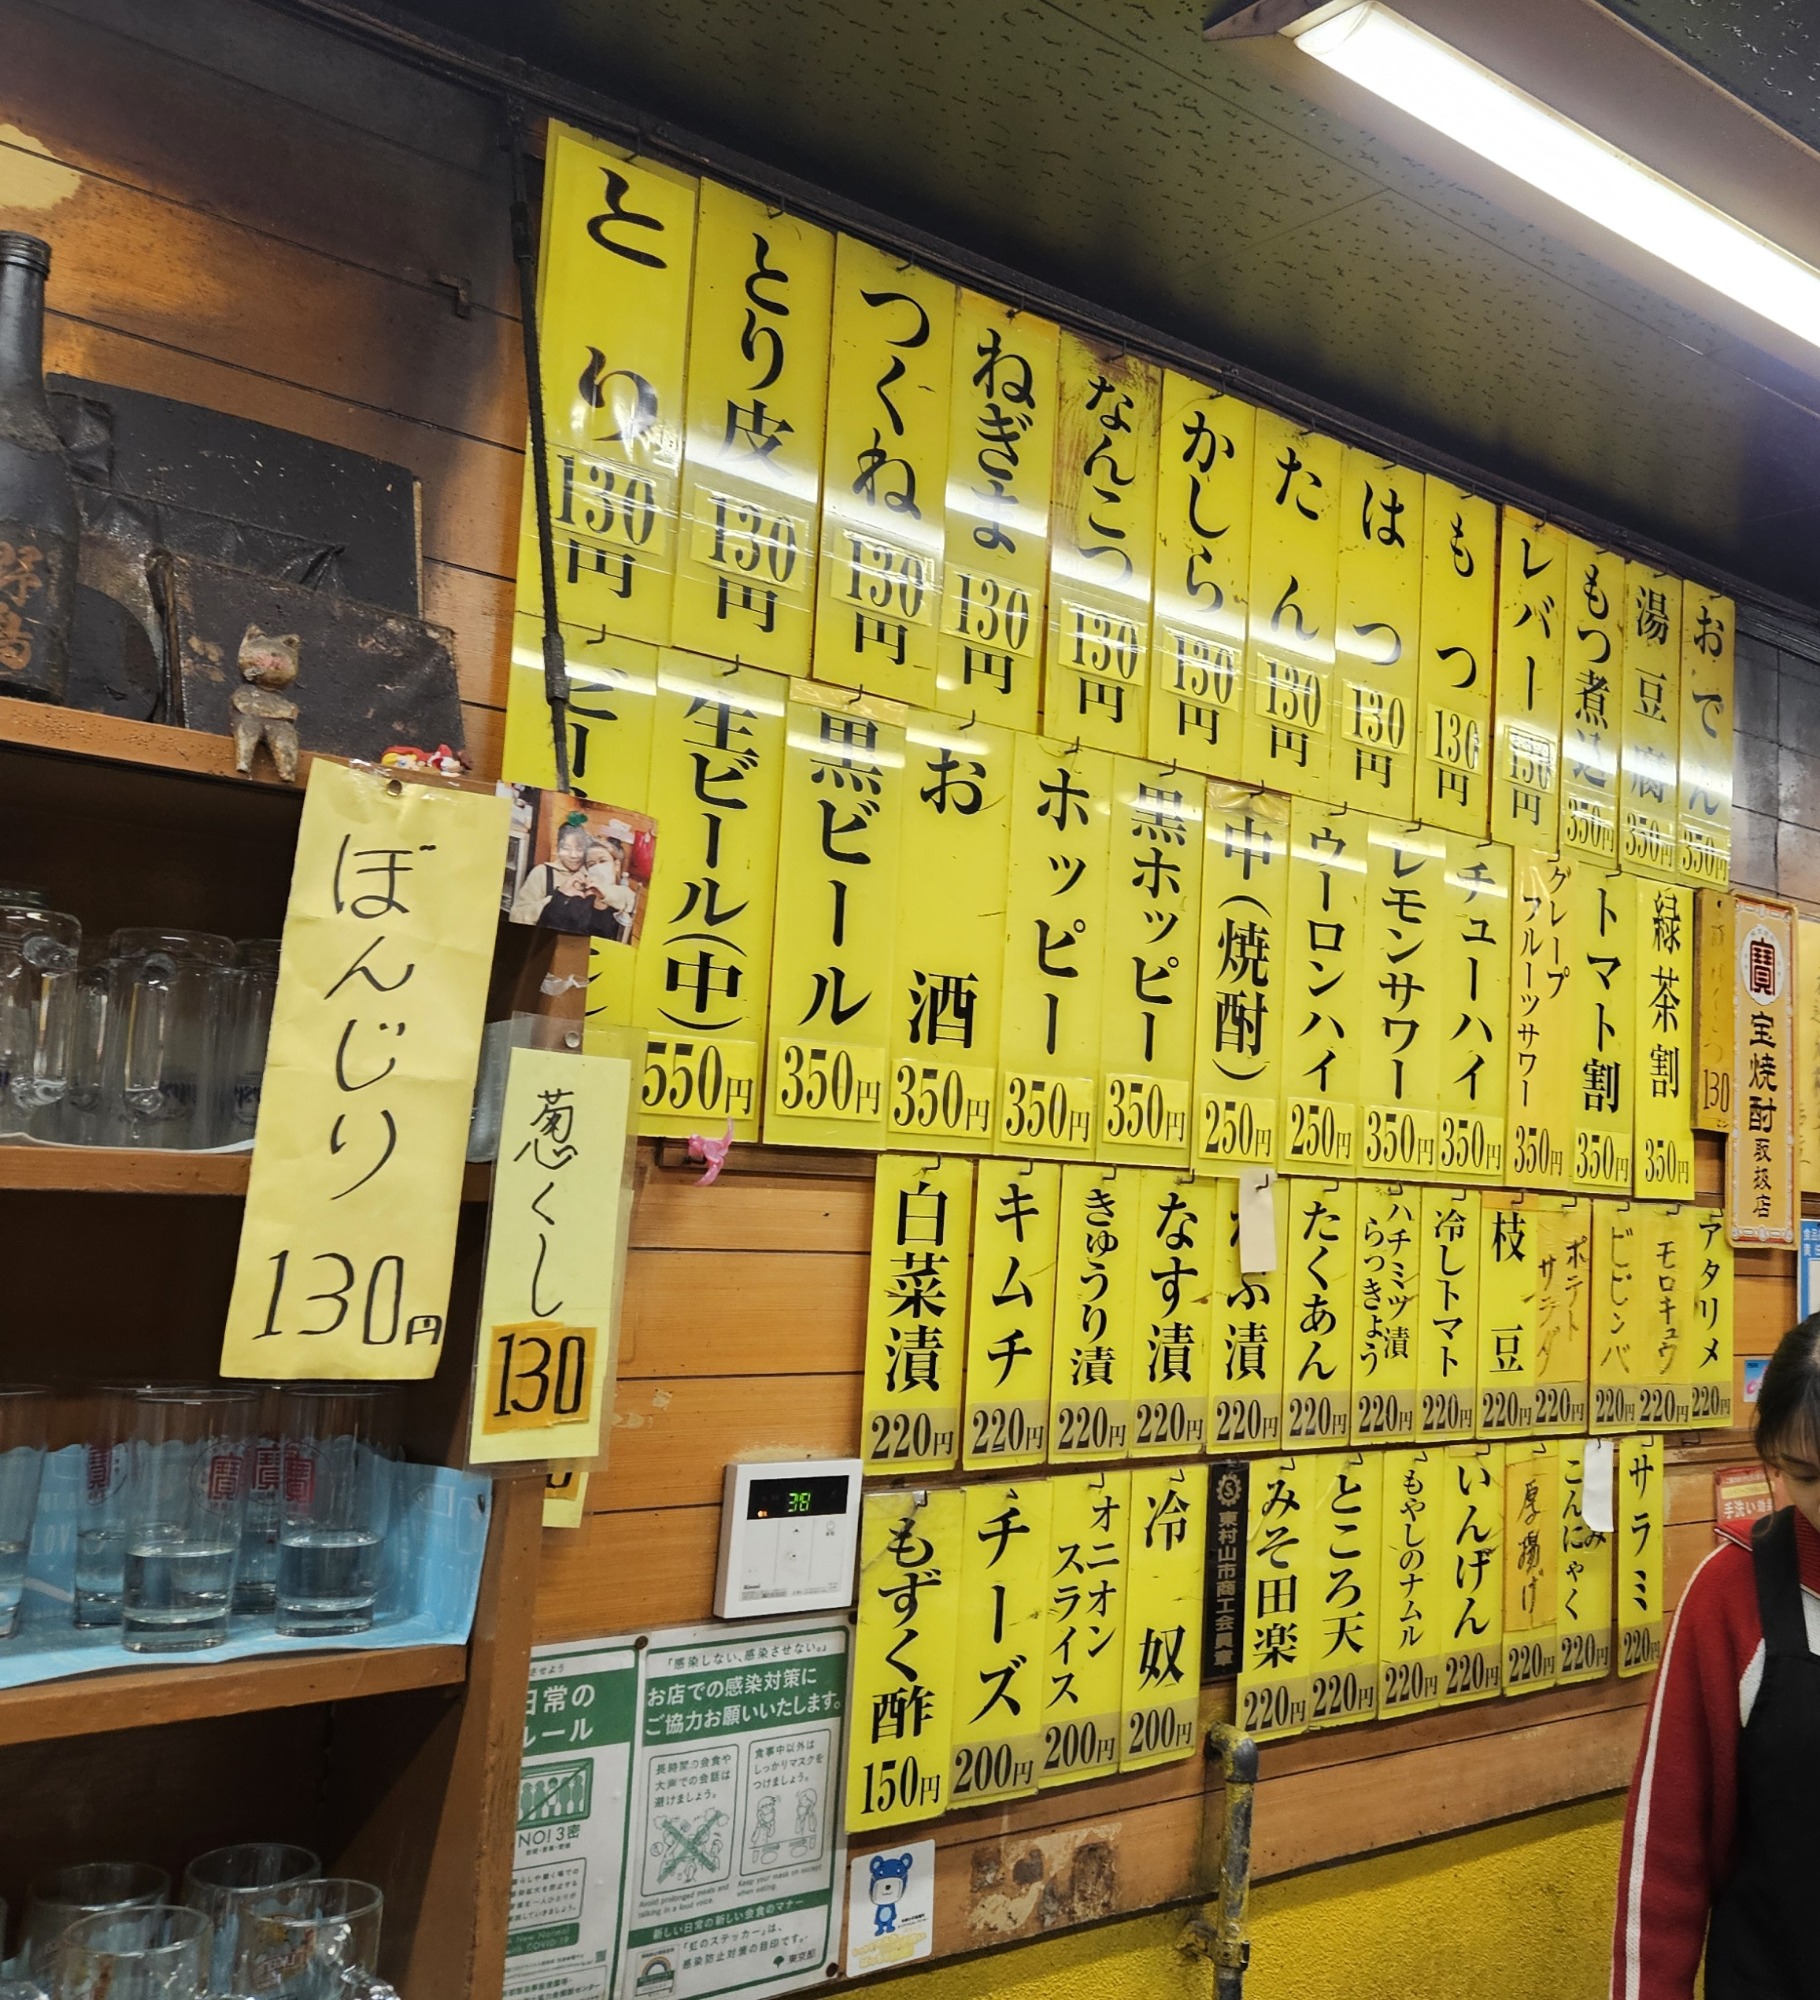 とり 130円
とり皮 130円
つくね 130円
ねぎま 130円
なんこつ 130円
かしら 130円
たん 130円
はつ 130円
もつ 130円
レバー 130円
もつ煮込 350円
湯豆腐 350円
おでん 350円
生ビール(中) 550円
黒ビール 350円
お酒 350円
ホッピー 350円
黒ホッピー 350円
中(焼酎) 250円
ウーロンハイ 250円
レモンサワー 350円
チューハイ 350円
グレープ
フルーツサワー 350円
トマト割 350円
緑茶割 350円
130
寶
宝焼酎取扱店
白菜漬 220円
キムチ 220円
きゅうり漬 220円
なす漬 220円
ぶ漬 220円
たくあん 220円
ハチミツ漬
らっきょう 220円
冷しトマト 220円
枝豆 220円
ポテト
サラダ 220円
ビビンバ 220円
モロキュウ 220円
アタリメ 220円
もずく酢 150円
チーズ 200円
オニオン
スライス 200円
冷奴 200円
東村山市商工会員章
みそ田楽 220円
ところ天 220円
もやしのナムル 220円
いんげん 220円
厚揚げ 220円
こんにゃく 220円
サラミ 220円
ぼんじり
130円
葱くし
130
寶
日常の
ルール
NO!3密
「感染しない、感染させない。」
お店での感染対策に
ご協力お願いいたします。
長時間の会食や
大声での会話は
避けましょう。
食事中以外は
しっかりマスクを
つけましょう。
Avoid prolonged meals and
talking in a loud voice.
Keep your mask on except
when eating.
新しい日常の新しい会食のマナー
「虹のステッカー」は、
感染防止対策の目印です。
東京都
手洗い